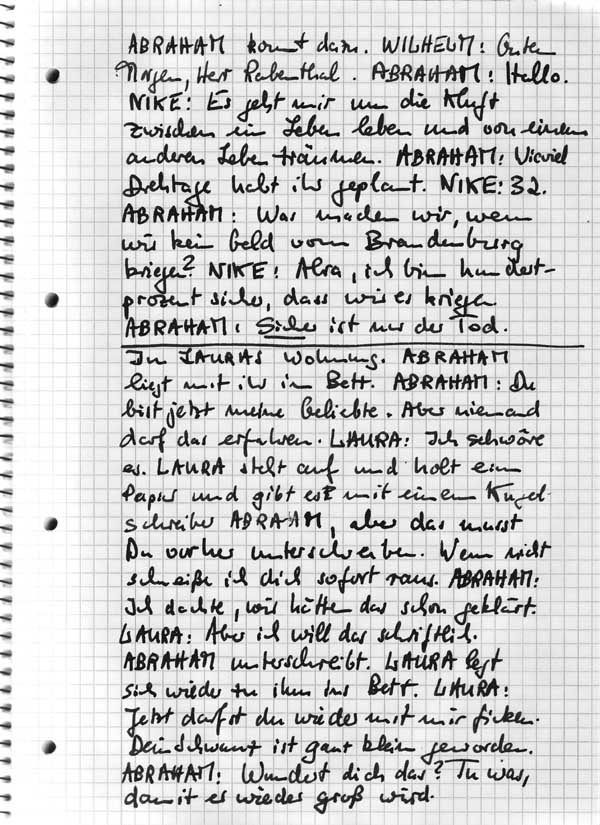 ABRAHAM kommt dazu. WILHELM: Guten
Morgen, Herr Rabenthal. ABRAHAM: Hallo.
NIKE: Es geht mir um die Kluft
zwischen ein Leben leben und von einem
anderen Leben träumen. ABRAHAM: Wieviel
Drehtage habt ihr geplant. NIKE: 32.
ABRAHAM: Was machen wir, wenn
wir kein Geld vom Brandenburg
kriegen? NIKE: Also, ich bin hundert-
prozent sicher, dass wir es kriegen
ABRAHAM: Sicher ist nur der Tod.
In LAURAS Wohnung. ABRAHAM
liegt mit ihr im Bett. ABRAHAM: Du
bist jetzt meine Geliebte. Aber niemand
darf das erfahren. LAURA: Ich schwöre
es. LAURA steht auf und holt ein
Papier und gibt es mit einem Kugel-
schreiber ABRAHAM, aber das musst
Du vorher unterschreiben. Wenn nicht
schmeiße ich dich sofort raus. ABRAHAM:
Ich dachte, wir hätten das schon geklärt.
LAURA: Aber ich will das schriftlich.
ABRAHAM unterschreibt. LAURA legt
sich wieder zu ihm ins Bett. LAURA:
Jetzt darfst du wieder mit mir ficken.
Dein Schwanz ist ganz klein geworden.
ABRAHAM: Wundert dich das? Tu was,
damit er wieder groß wird.